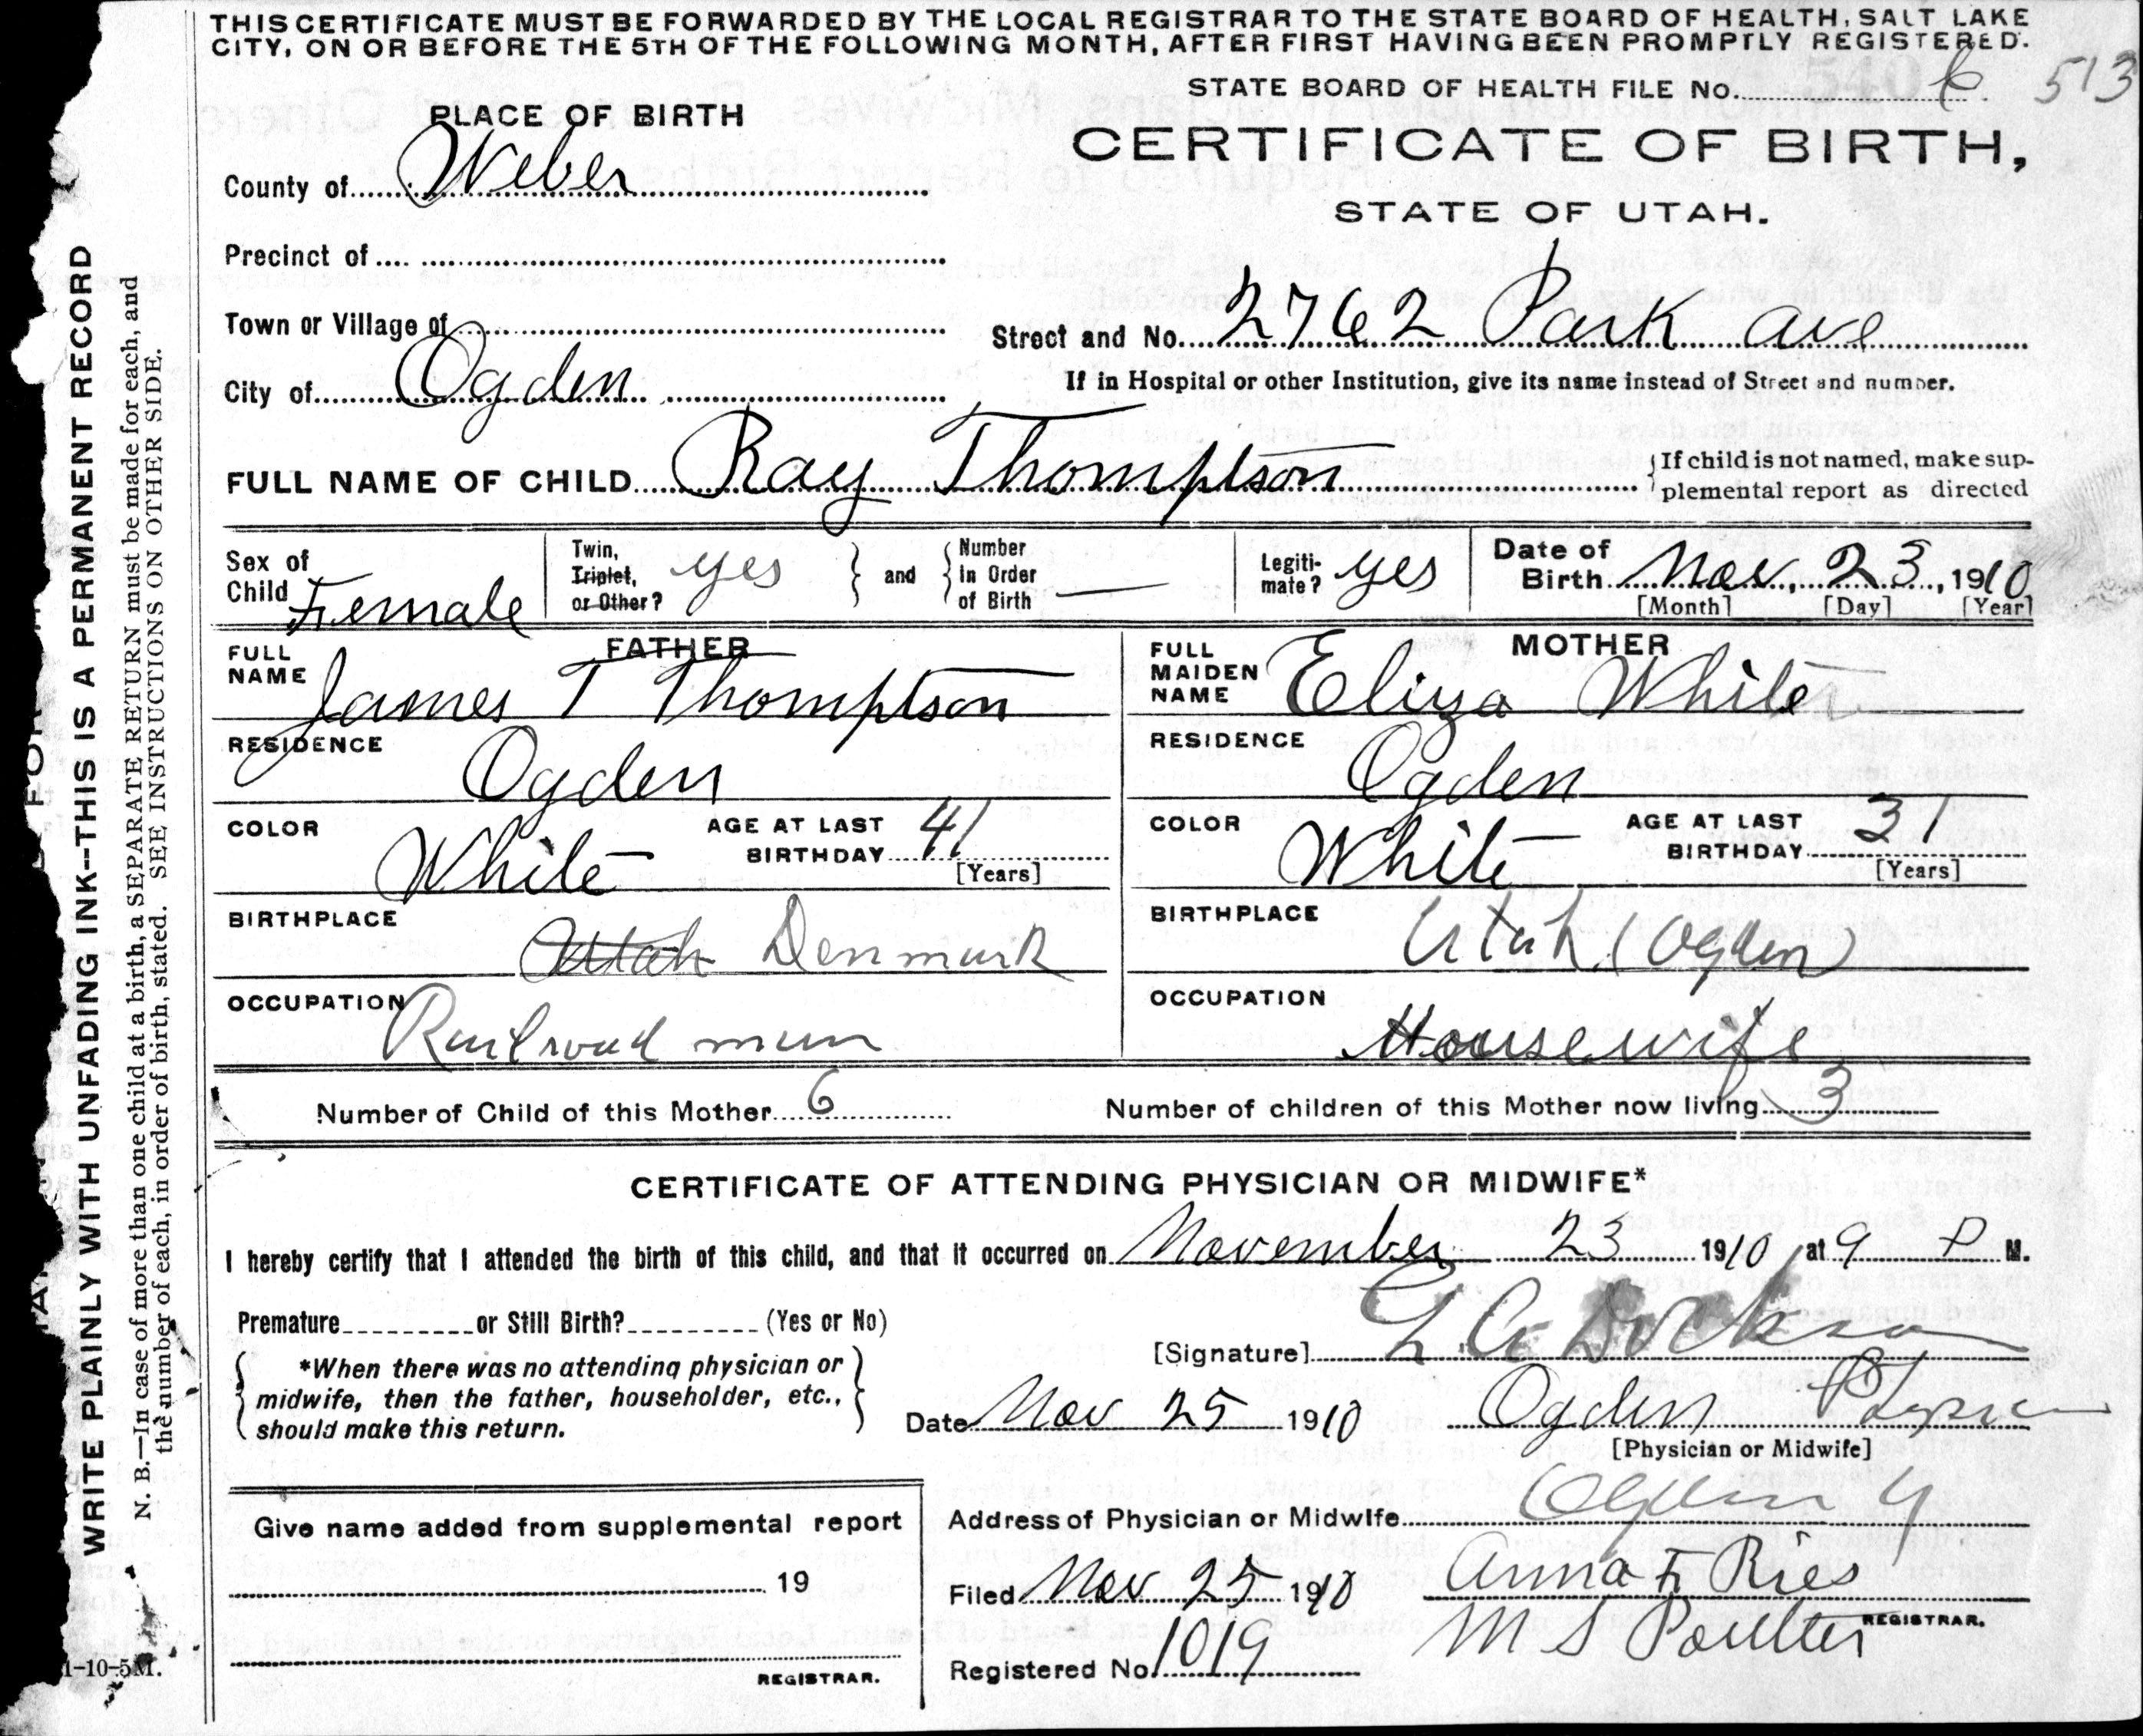 THIS CERTIFICATE MUST BE FORWARDED BY THE LOCAL REGISTRAR TO THE STATE BOARD OF HEALTH, SALT LAKE
CITY, ON OR BEFORE THE 5TH OF THE FOLLOWING MONTH, AFTER FIRST HAVING BEEN PROMPTLY REGISTERED.
STATE BOARD OF HEALTH FILE No. 6 513
PLACE OF BIRTH
CERTIFICATE OF BIRTH,
STATE OF UTAH.
County of Weber
Precinct of
Town or Village of
Street and No. 2762 Park ave
City of Ogden
If in Hospital or other Institution, give its name instead of Street and number.
FULL NAME OF CHILD Ray Thomptson
If child is not named, make sup-
plemental report as directed
Sex of Child Female
Twin, Triplet, or Other? yes
and
Number in Order of Birth —
Legiti-mate? yes
Date of Birth Nov, 23, 1910
[Month] [Day] [Year]
FATHER
FULL NAME James T Thomptson
RESIDENCE Ogden
COLOR White
AGE AT LAST BIRTHDAY 41
[Years]
BIRTHPLACE Utah Denmark
OCCUPATION Railroad man
MOTHER
FULL MAIDEN NAME Eliza White
RESIDENCE Ogden
COLOR White
AGE AT LAST BIRTHDAY 31
[Years]
BIRTHPLACE Utah (Ogden)
OCCUPATION Housewife
Number of Child of this Mother 6
Number of children of this Mother now living 3
CERTIFICATE OF ATTENDING PHYSICIAN OR MIDWIFE*
I hereby certify that I attended the birth of this child, and that it occurred on November 23 1910, at 9 P M.
Premature or Still Birth? (Yes or No)
*When there was no attending physician or
midwife, then the father, householder, etc.,
should make this return.
[Signature]
Date Nov 25 1910 Ogden
[Physician or Midwife]
Address of Physician or Midwife Ogden U
Give name added from supplemental report
19
REGISTRAR.
Filed Nov 25 1910 Anna F Ries
REGISTRAR.
M S Poulter
Registered No. 1019
WRITE PLAINLY WITH UNFADING INK--THIS IS A PERMANENT RECORD
N. B.—In case of more than one child at a birth, a SEPARATE RETURN must be made for each, and
the number of each, in order of birth, stated. SEE INSTRUCTIONS ON OTHER SIDE.
1-10-5M.